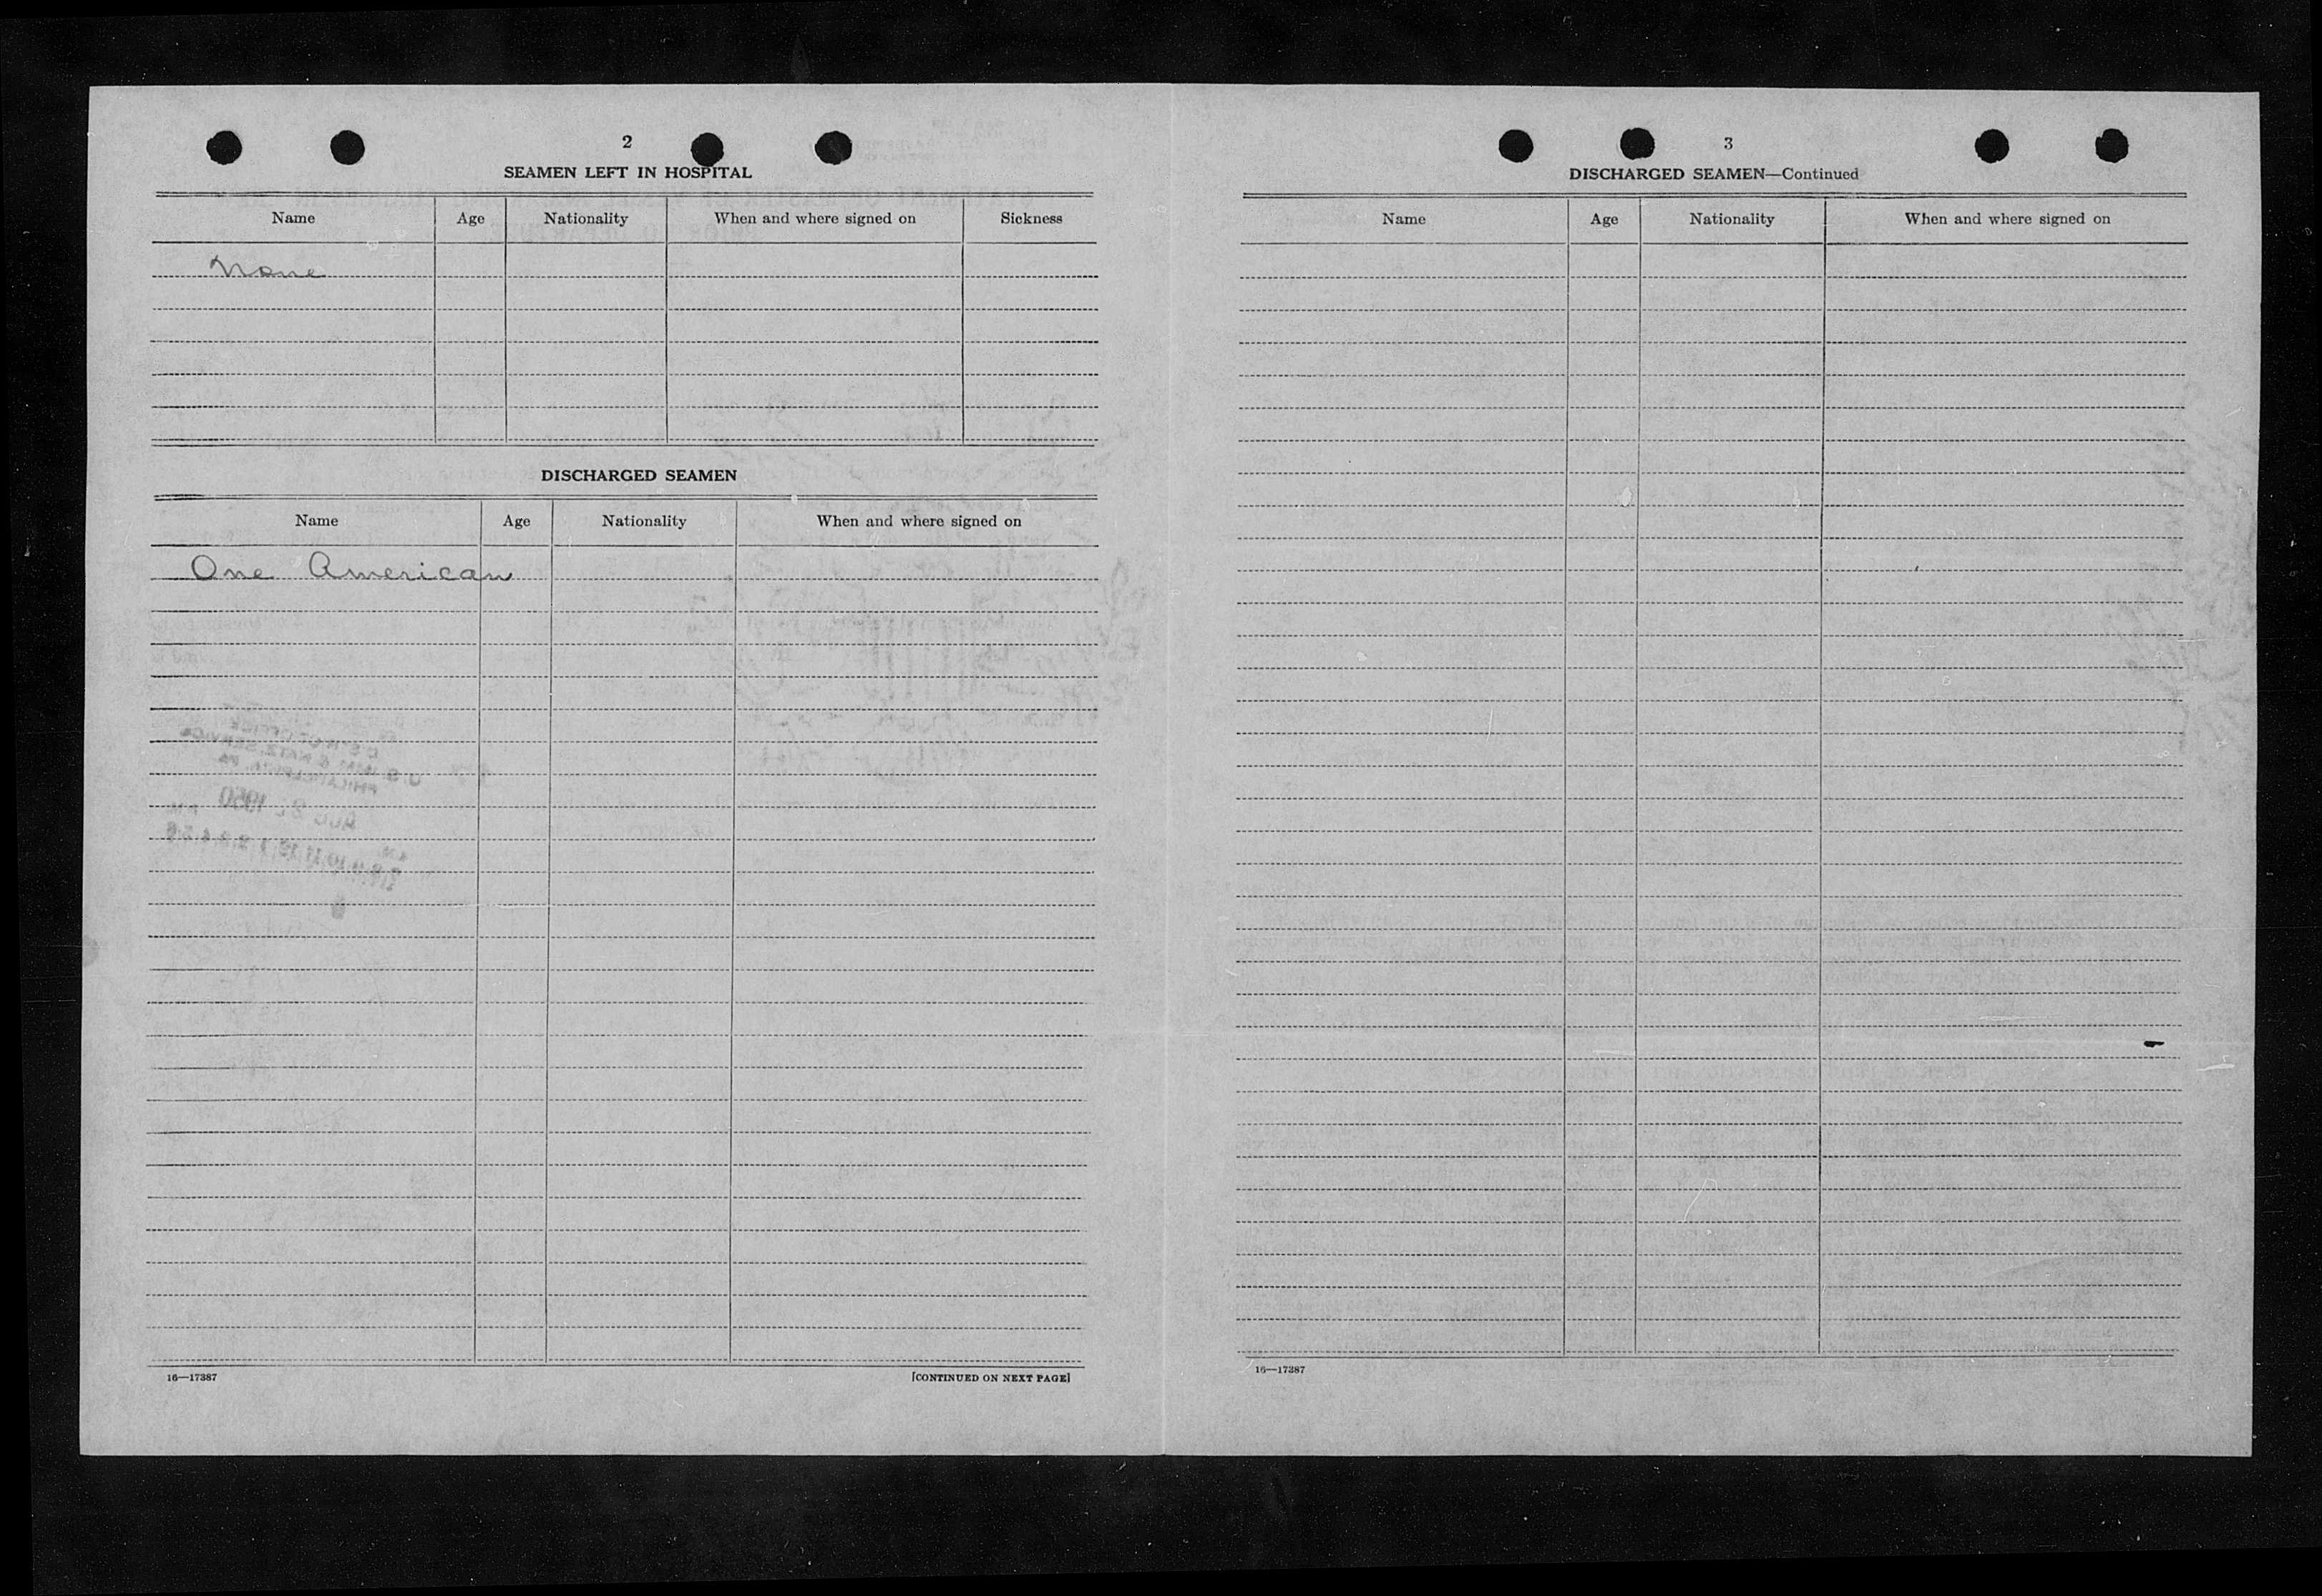 2
SEAMEN LEFT IN HOSPITAL
Name Age Nationality When and where signed on Sickness
None
DISCHARGED SEAMEN
Name Age Nationality When and where signed on
One American
16—17387 [CONTINUED ON NEXT PAGE]
3
DISCHARGED SEAMEN—Continued
Name Age Nationality When and where signed on
16—17387